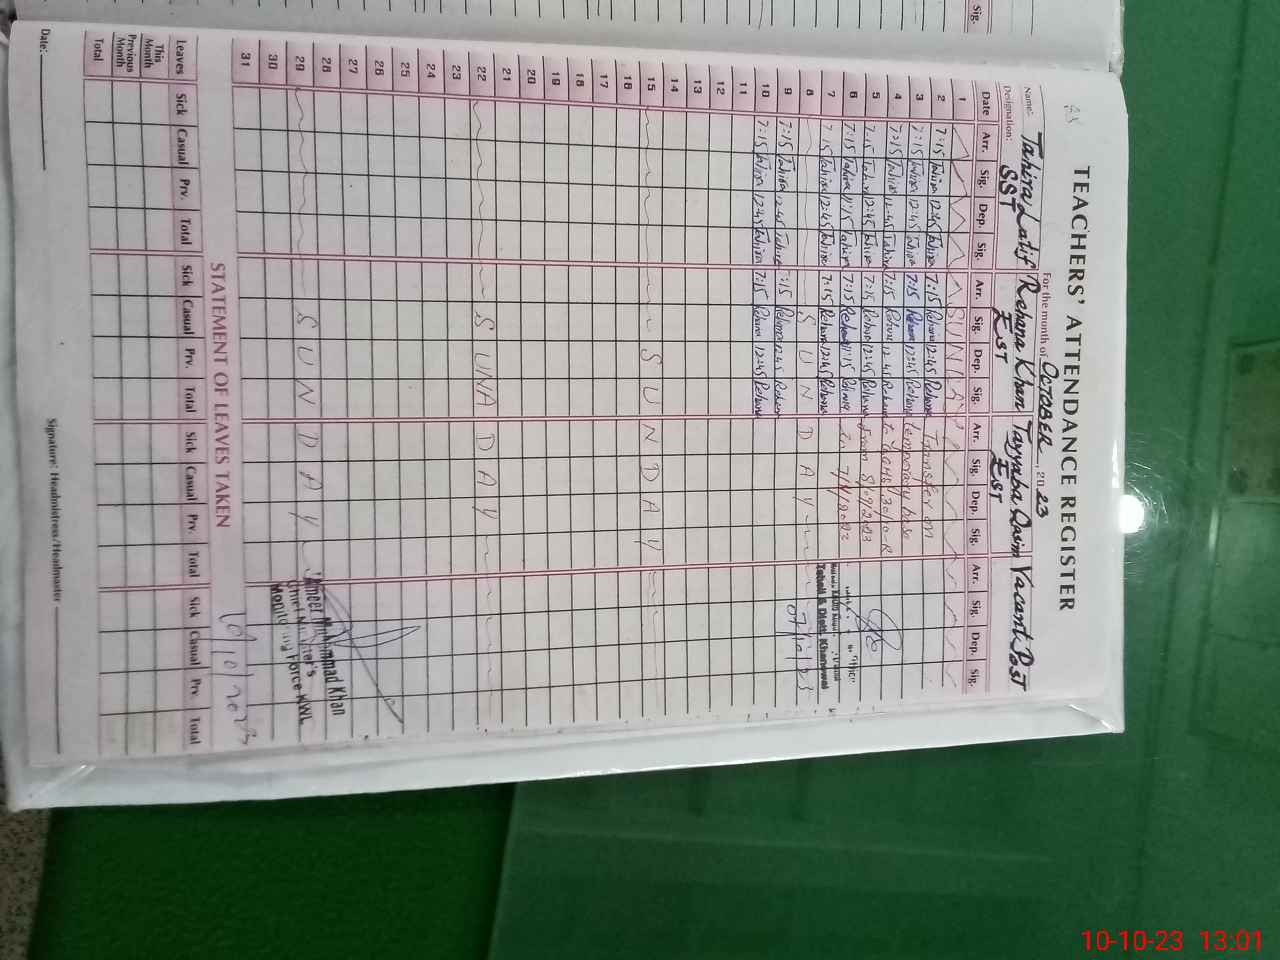 TEACHERS' ATTENDANCE REGISTER
For the month of OCTOBER, 2023
Name: Tahira Latif Rehana Khan Tayyaba Qasim Vacant Post
Designation: SST EST EST
Date Arr. Sig. Dep. Sig. Arr. Sig. Dep. Sig. Arr. Sig. Dep. Sig. Arr. Sig. Dep. Sig.
1 SUNDAY
2 7:15 Tahira 12:45 Tahira 7:15 Rehana 12:45 Rehana Transfer on
3 7:15 Tahira 12:45 Tahira 7:15 Rehana 12:45 Rehana temporary base
4 7:15 Tahira 12:45 Tahira 7:15 Rehana 12:45 Rehana to GGHS
5 7:15 Tahira 12:45 Tahira 7:15 Rehana 12:45 Rehana from
6 7:15 Tahira 11:15 Tahira 7:15 Rehana 11:15 Rehana
7 7:15 Tahira 12:45 Tahira 7:15 Rehana 12:45 Rehana
Tehsil & Distt. Khanewal
07/10/23
8 SUNDAY
9 7:15 Tahira 12:45 Tahira 7:15 Rehana 12:45 Rehana
10 7:15 Tahira 12:45 Tahira 7:15 Rehana 12:45 Rehana
11
12
13
14
15 SUNDAY
16
17
18
19
20
21
22 SUNADAY
23
24
25
26
27
28
29 SUNDAY
30
31
Ameer Muhammad Khan
Chief Minister's
Monitoring Force KWL
10/10/2023
STATEMENT OF LEAVES TAKEN
Leaves Sick Casual Prv. Total Sick Casual Prv. Total Sick Casual Prv. Total Sick Casual Prv. Total
This Month
Previous Month
Total
Date: Signature: Headmistress/Headmaster
Sig.
10-10-23 13:01